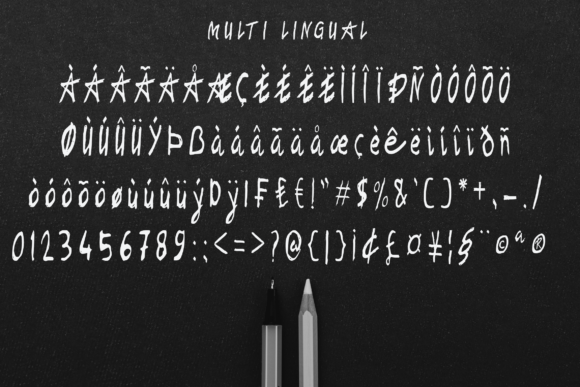 MULTI LINGUAL
ÀÁÂÃÄÅÆÇÈÉÊËÌÍÎÏÐÑÒÓÔÕÖ
ØÙÚÛÜÝÞßàáâãäåæçèéêëìíîïðñ
òóôõöøùúûüýþÿ₣₤€!"#$%&'()*+,-./
0123456789:;<=>?@{|}¡¢£¤¥¦§¨©ª®